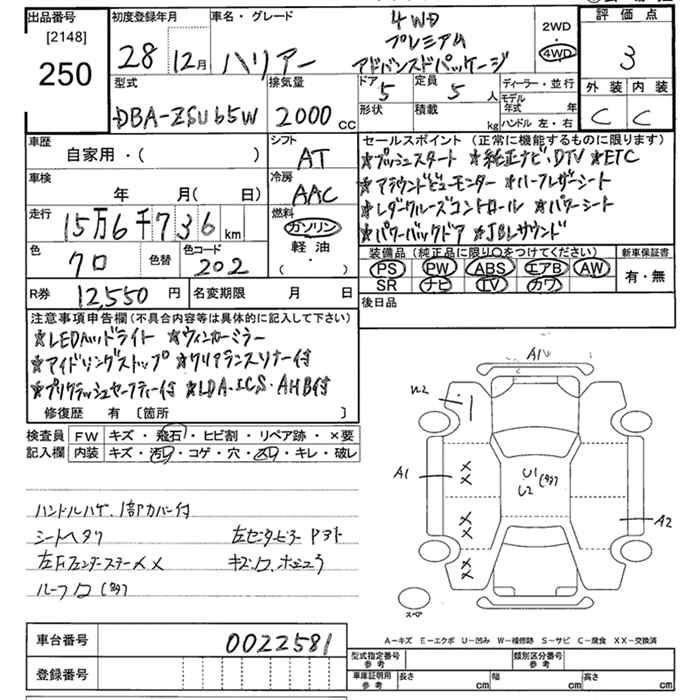 出品番号
[2148]
250
初度登録年月
28 12月
車名・グレード
ハリアー
4WD
プレミアム
アドバンスドパッケージ
2WD
・
4WD
評価点
3
外装 内装
C C
型式
DBA-ZSU65W
排気量
2000 CC
ドア
5
定員
5 人
形状
積載
kg
ディーラー・並行
モデル
年式 年
ハンドル 左・右
車歴
自家用・( )
シフト
AT
車検
年 月( 日)
冷房
AAC
走行
15万6千736 km
燃料
ガソリン
軽油
・( )
色
クロ
色替
色コード
202
R券
12,550 円
名変期限 月 日
セールスポイント(正常に機能するものに限ります)
★プッシュスタート ★純正ナビ、DTV ★ETC
★アラウンドビューモニター ★ハーフレザーシート
★レダークルーズコントロール ★パワーシート
★パワーバックドア ★JBLサウンド
装備品(純正品に限り○をつけてください)
PS PW ABS エアB AW
SR ナビ TV カワ
新車保証書
有・無
後日品
注意事項申告欄(不具合内容等は具体的に記入して下さい)
★LEDヘッドライト ★ウィンカーミラー
★アイドリングストップ ★クリアランスソナー付
★プリクラッシュセーフティー付 ★LDA・ICS・AHB付
修復歴 有 〔箇所 〕
検査員
記入欄
FW キズ・飛石・ヒビ割・リペア跡・×要
内装 キズ・汚レ・コゲ・穴・スレ・キレ・破レ
ハンドルハゲ、1部カバー付
シートヘタリ
左センターピラー
ルーフ
A1
W2
A1
U1
U2
A2
スペア
A-キズ E-エクボ U-凹み W-補修跡 S-サビ C-腐食 XX-交換済
車台番号
0022581
登録番号
型式指定番号
参考
類別区分番号
参考
車庫証明用
参考
長さ cm
幅 cm
高さ cm